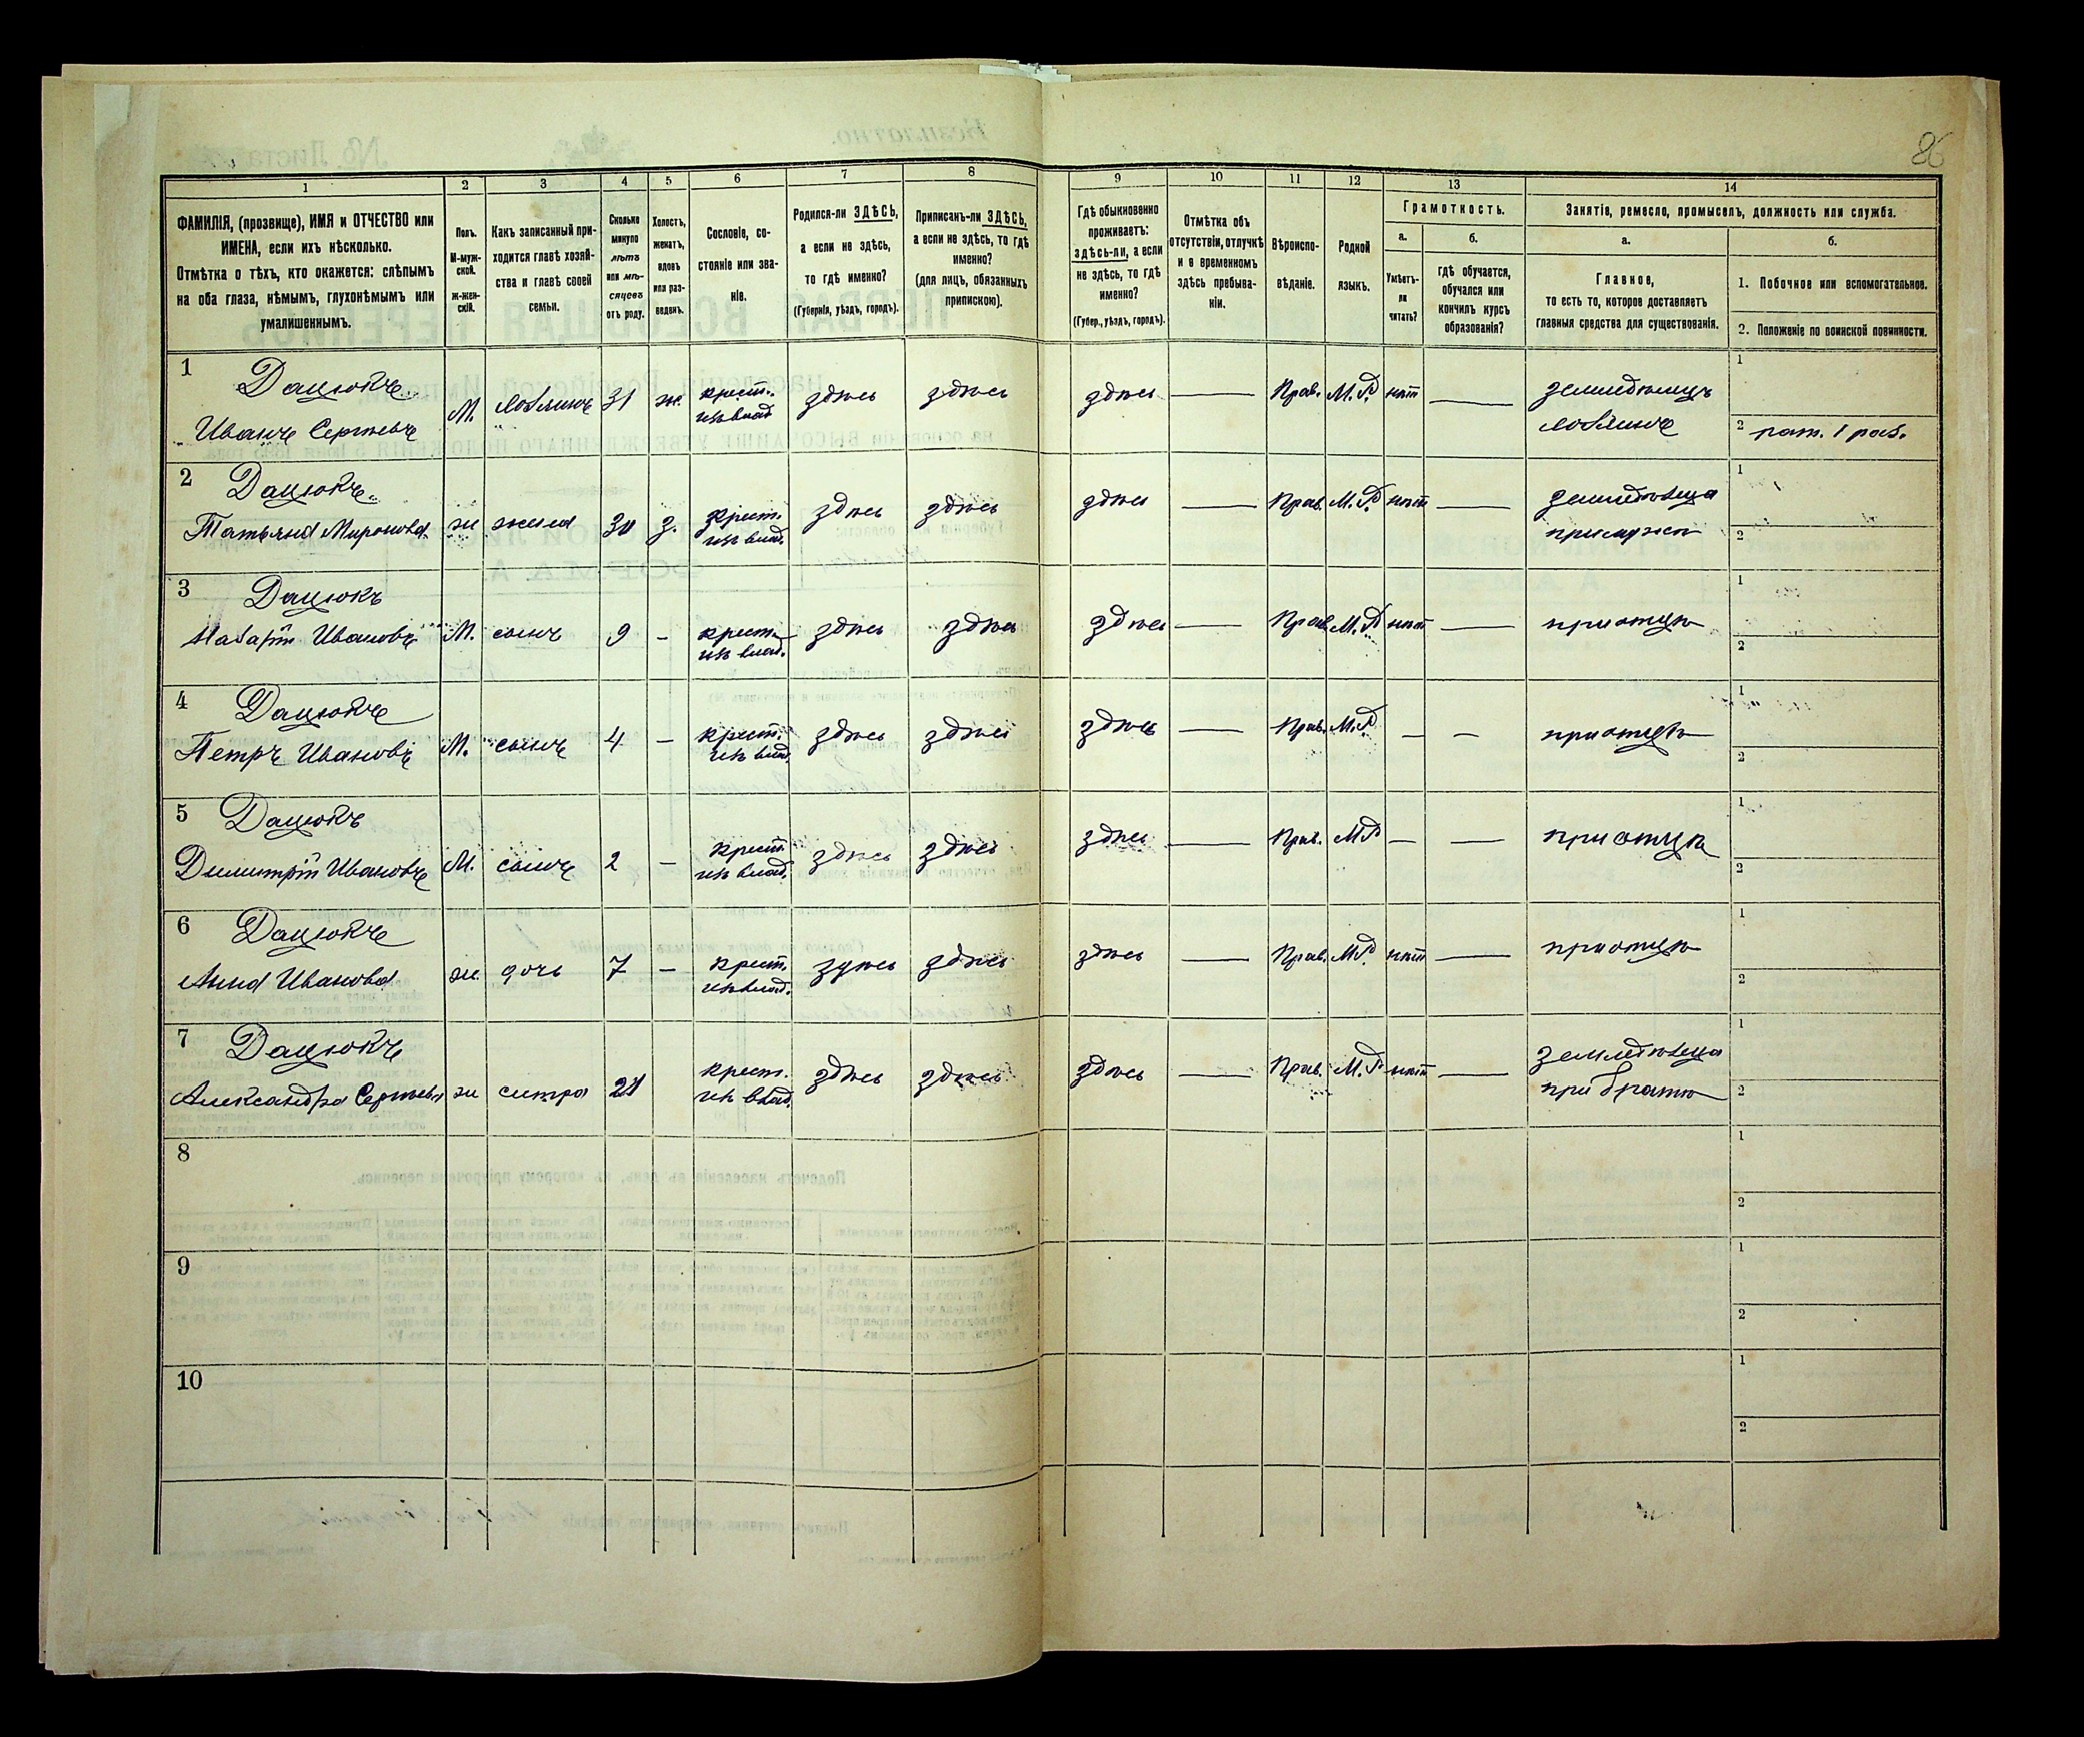 86
1 2 3 4 5 6 7 8 9 10 11 12 13 14
ФАМИЛІЯ, (прозвище), ИМЯ и ОТЧЕСТВО или
ИМЕНА, если ихъ нѣсколько.
Отмѣтка о тѣхъ, кто окажется: слѣпымъ
на оба глаза, нѣмымъ, глухонѣмымъ или
умалишеннымъ.
Полъ.
М-муж-
ской.
Ж-жен-
скій.
Какъ записанный при-
ходится главѣ хозяй-
ства и главѣ своей
семьи.
Сколько
минуло
лѣтъ
или мѣ-
сяцевъ
отъ роду.
Холостъ,
женатъ,
вдовъ
или раз-
веденъ.
Сословіе, со-
стояніе или зва-
ніе.
Родился-ли ЗДѢСЬ,
а если не здѣсь,
то гдѣ именно?
(Губернія, уѣздъ, городъ).
Приписанъ-ли ЗДѢСЬ,
а если не здѣсь, то гдѣ
именно?
(для лицъ, обязанныхъ
припискою).
Гдѣ обыкновенно
проживаетъ:
здѣсь-ли, а если
не здѣсь, то гдѣ
именно?
(Губер., уѣздъ, городъ).
Отмѣтка объ
отсутствіи, отлучкѣ
и о временномъ
здѣсь пребыва-
ніи.
Вѣроиспо-
вѣданіе.
Родной
языкъ.
Грамотность.
а.
Умѣетъ-
ли
читать?
б.
гдѣ обучается,
обучался или
кончилъ курсъ
образованія?
Занятіе, ремесло, промыселъ, должность или служба.
а.
Главное,
то есть то, которое доставляетъ
главныя средства для существованія.
б.
1. Побочное или вспомогательное.
2. Положеніе по воинской повинности.
1 Дацюкъ
Иванъ Сергѣевъ М. хозяинъ 31 ж. крест. изъ влад. здѣсь здѣсь здѣсь — Прав. М.Р. нѣтъ — земледѣлецъ хозяинъ 1
2 рат. 1 раз.
2 Дацюкъ
Татьяна Миронова ж жена 30 з. крест. изъ влад. здѣсь здѣсь здѣсь — Прав. М.Р. нѣтъ — земледѣлица при мужѣ 1
2
3 Дацюкъ
Иванов М. сынъ 9 — крест. изъ влад. здѣсь здѣсь здѣсь — Прав. М.Р. нѣтъ — при отцѣ 1
2
4 Дацюкъ
Петръ Иванов М. сынъ 4 — крест. изъ влад. здѣсь здѣсь здѣсь — Прав. М.Р. — — при отцѣ 1
2
5 Дацюкъ
Димитрій Ивановъ М. сынъ 2 — крест. изъ влад. здѣсь здѣсь здѣсь — Прав. М.Р. — — при отцѣ 1
2
6 Дацюкъ
Анна Иванова ж. дочь 7 — крест. изъ влад. здѣсь здѣсь здѣсь — Прав. М.Р. нѣтъ — при отцѣ 1
2
7 Дацюкъ
Александра Сергѣева ж сестра крест. изъ влад. здѣсь здѣсь здѣсь — Прав. М.Р. нѣтъ — земледѣлица при братѣ 1
2
8 1
2
9 1
2
10 1
2